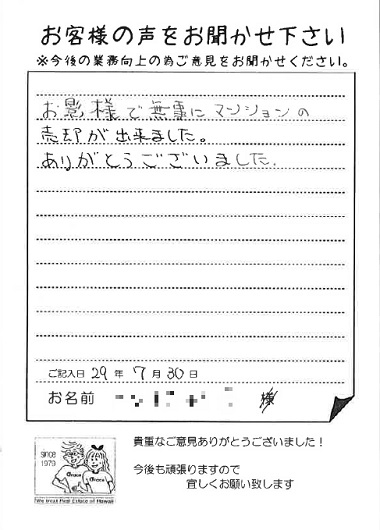 お客様の声をお聞かせ下さい
※今後の業務向上の為ご意見をお聞かせください。
お影様で無事にマンションの
売却が出来ました。
ありがとうございました.
ご記入日 29 年 7 月 30 日
お名前 様
SINCE
1979
貴重なご意見ありがとうございました！
今後も頑張りますので
宜しくお願い致します